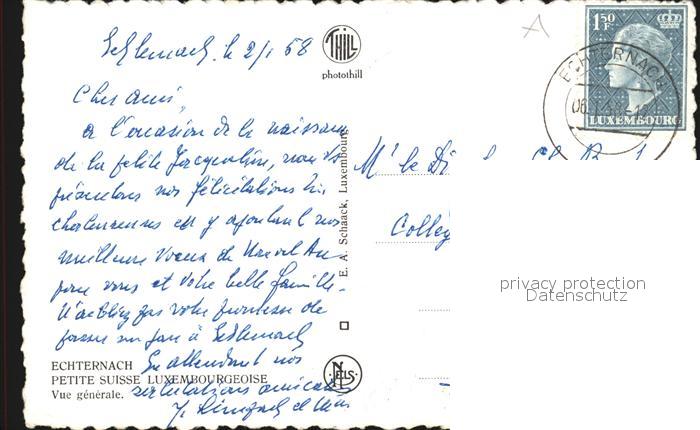 le 2/1 58
Cher ami,
a l'occasion de la naissance
de la petite Jacqueline, nous vous
présentons nos félicitations les
chaleureuses et y ajoutant nos
meilleurs voeux de Nouvel An
pour vous et votre belle famille.
N'oubliez pas votre promesse de
passer un jour à
En attendant nos
salutations amicales
et Mme
ECHTERNACH
PETITE SUISSE LUXEMBOURGEOISE
Vue générale.
THILL
photothill
E. A. Schaack, Luxembourg
NELS
1F50
LUXEMBOURG
ECHTERNACH
Mr le
privacy protection
Datenschutz